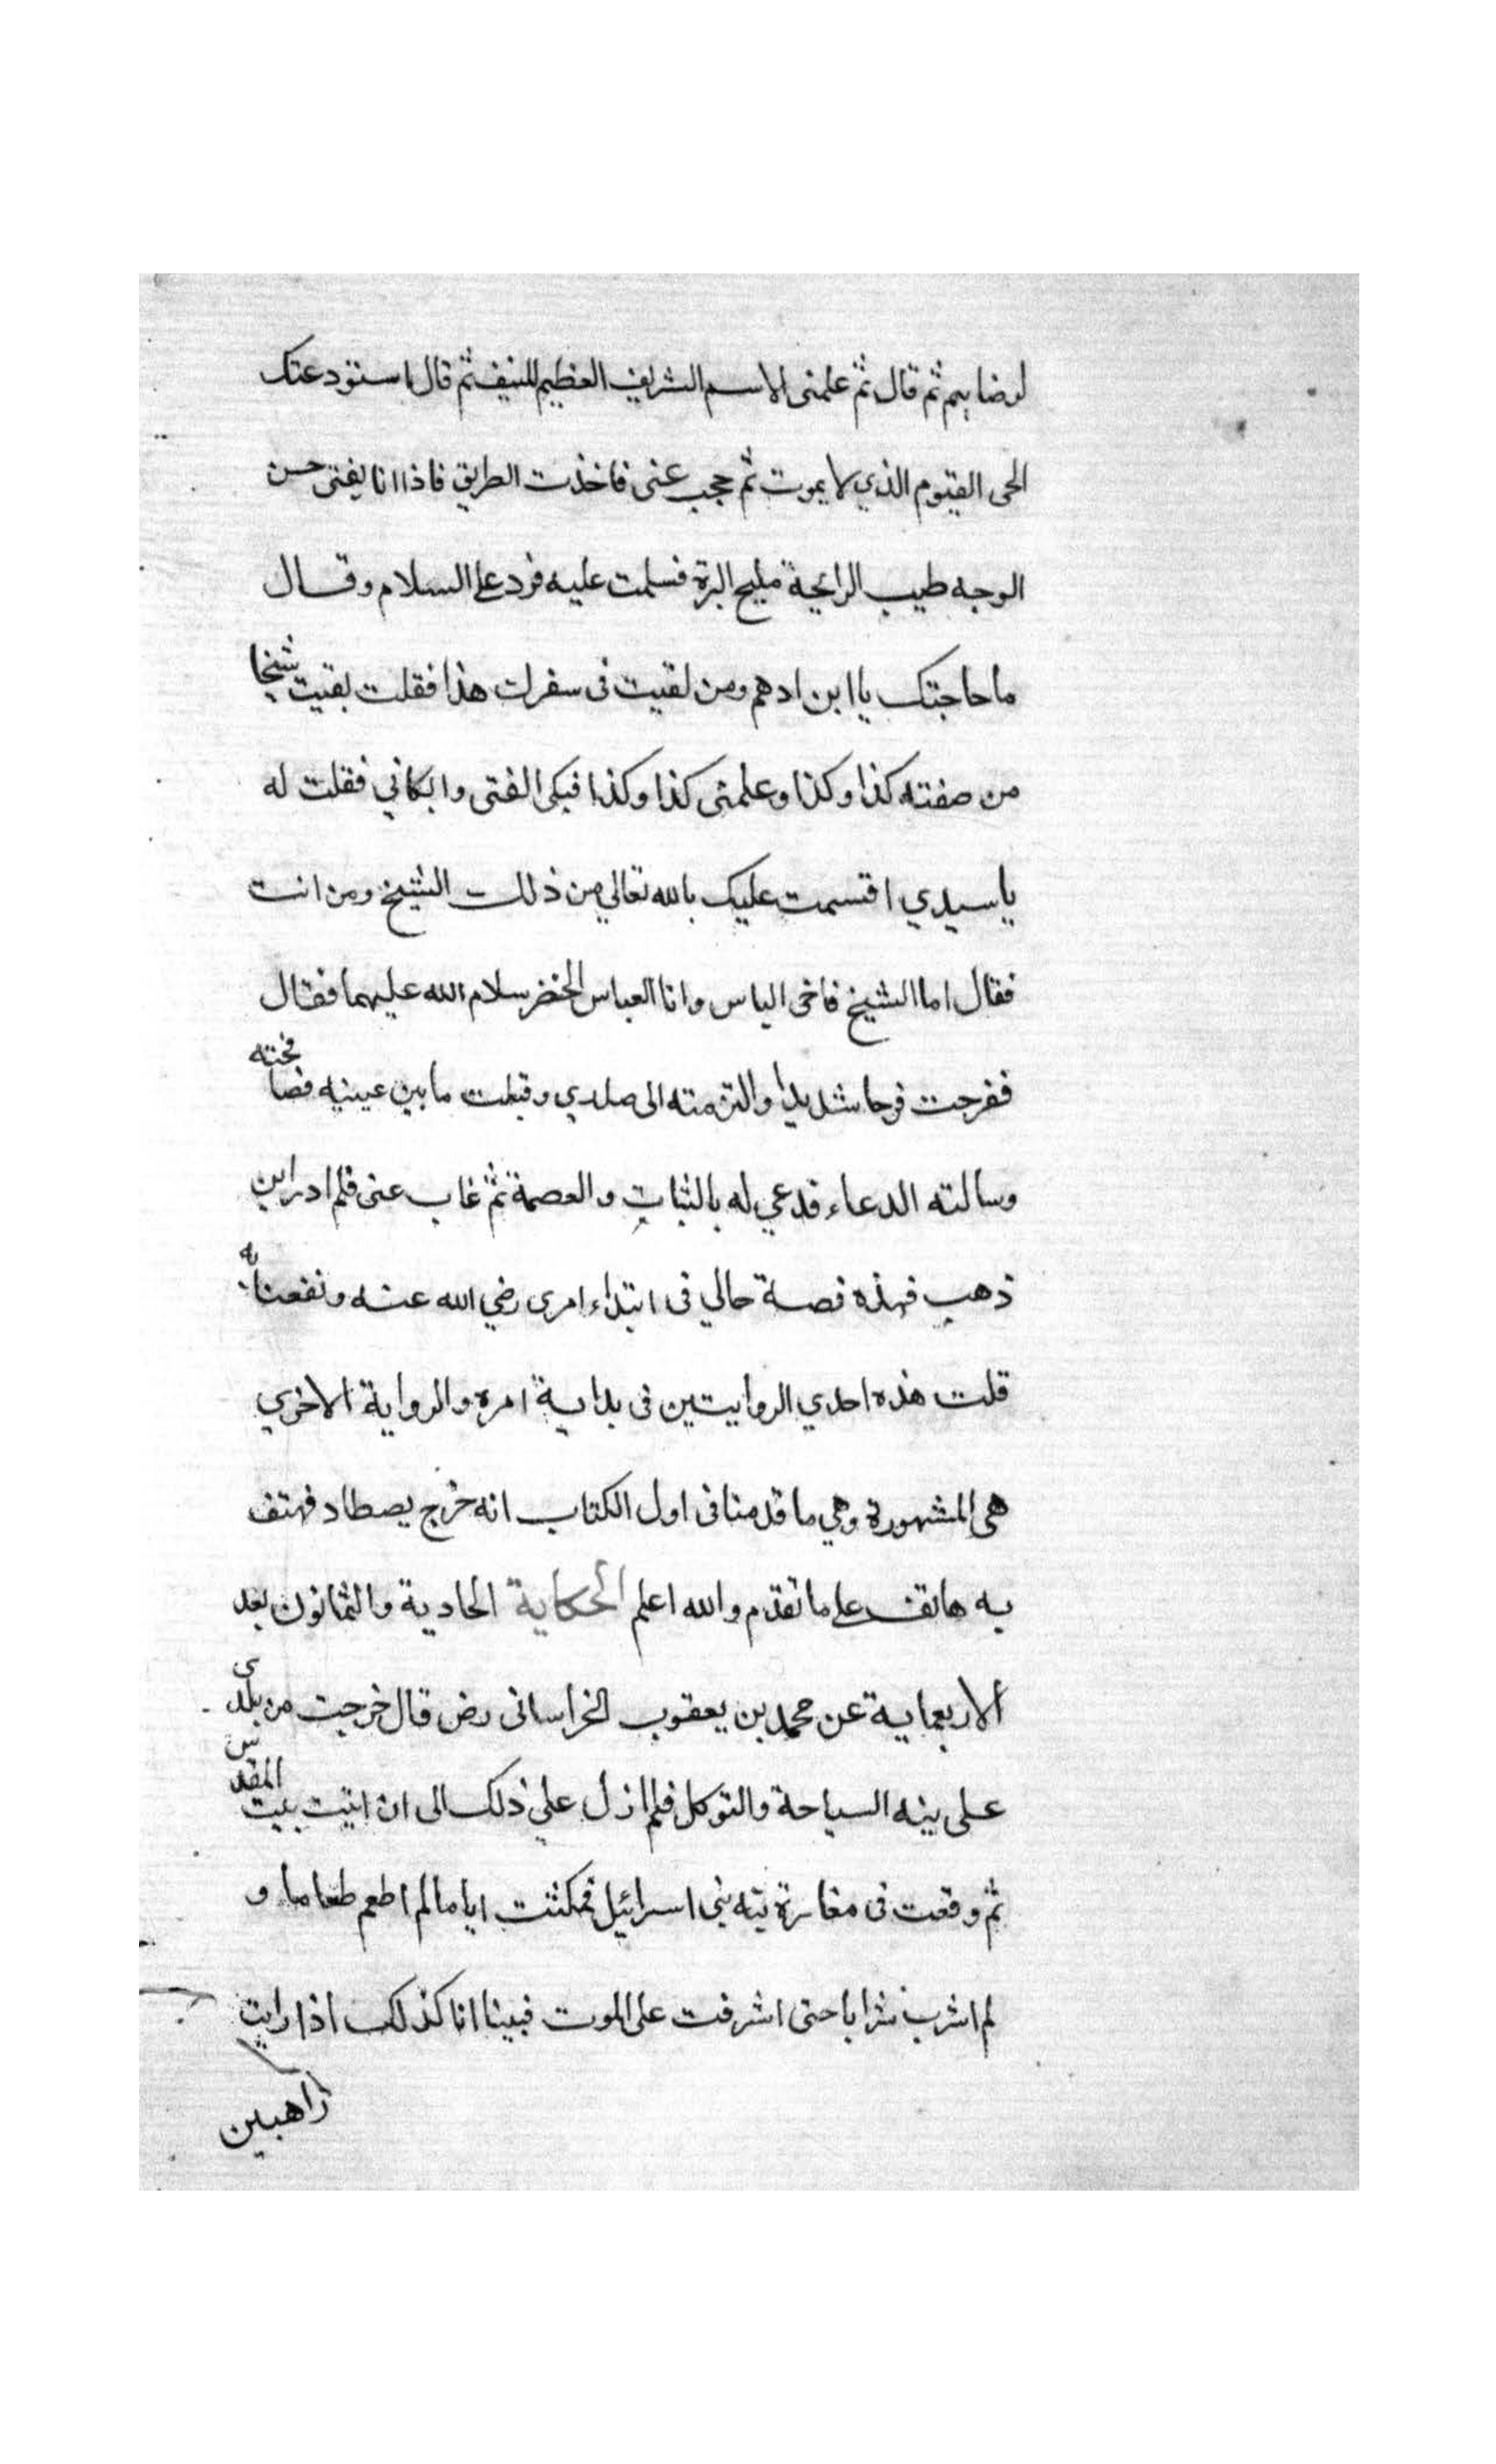 لرضاهم ثم قال ثم علمنى الاسم الشريف العظيم المنيف ثم قال استودعتك
الحى القيوم الذي لا يموت ثم حجب عنى فاخذت الطريق فاذا انا بفتى حسن
الوجه طيب الرائحة مليح البزة فسلمت عليه فرد على السلام وقال
ما حاجتك يا ابن ادهم ومن لقيت فى سفرك هذا فقلت لقيت شيخا
من صفته كذا وكذا وعلمنى كذا وكذا فبكى الفتى وابكاني فقلت له
يا سيدي اقسمت عليك بالله تعالي من ذلك الشيخ ومن انت
فقال اما الشيخ فاخى الياس وانا العباس الخضر سلام الله عليهما فقال
ففرحت فرحا شديدا والتزمته الى صدري وقبلت ما بين عينيه فصافحته
وسالته الدعاء فدعي له بالثبات والعصمة ثم غاب عنى فلم ادر اين
ذهب فهذه قصة حالي فى ابتداء امرى رضي الله عنه ونفعنا به
قلت هذه احدي الروايتين فى بداية امره والرواية الاخري
هى المشهورة وهي ما قدمنا فى اول الكتاب انه خرج يصطاد فهتف
به هاتف على ما تقدم والله اعلم الحكاية الحادية والثمانون بعد
الاربعماية عن محمد بن يعقوب الخراسانى رض قال خرجت من بلدى
على نية السياحة والتوكل فلم ازل علي ذلك الى ان اتيت بيت المقدس
ثم وقعت فى مغارة تيه بني اسرائيل فمكثت اياما لم اطعم طعاما و
لم اشرب شرابا حتى اشرفت على الموت فبينا انا كذلك اذا رايت
راهبين